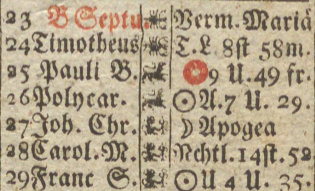 23 B Septu. Verm. Mariä
24 Timotheus T. L 8st 58m.
25 Pauli B. 9 U. 49 fr.
26 Polycar. ☉ A. 7 U. 29.
27 Joh. Chr. ☽ Apogea
28 Carol. M. Nchtl. 14st. 52
29 Franc S. ☉ U 4 U. 35.